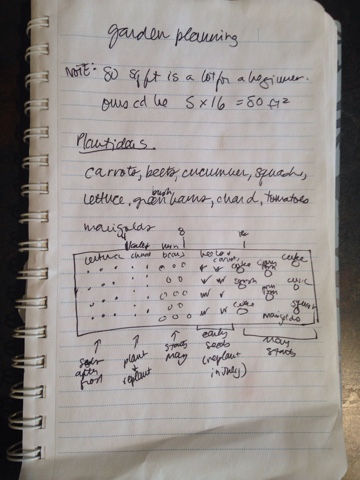 garden planning
NOTE: 80 sq ft is a lot for a beginner.
ours cd be 5 x 16 = 80 ft²
Plant ideas.
carrots, beets, cucumber, squash,
lettuce, green bush beans, chard, tomatoes
marigolds
8
lettuce chard beans beets + carrots cuke cuke
squash cuke
cuke squash
marigolds
seeds after frost
plant + replant
starts May
early seeds (replant in July)
May starts